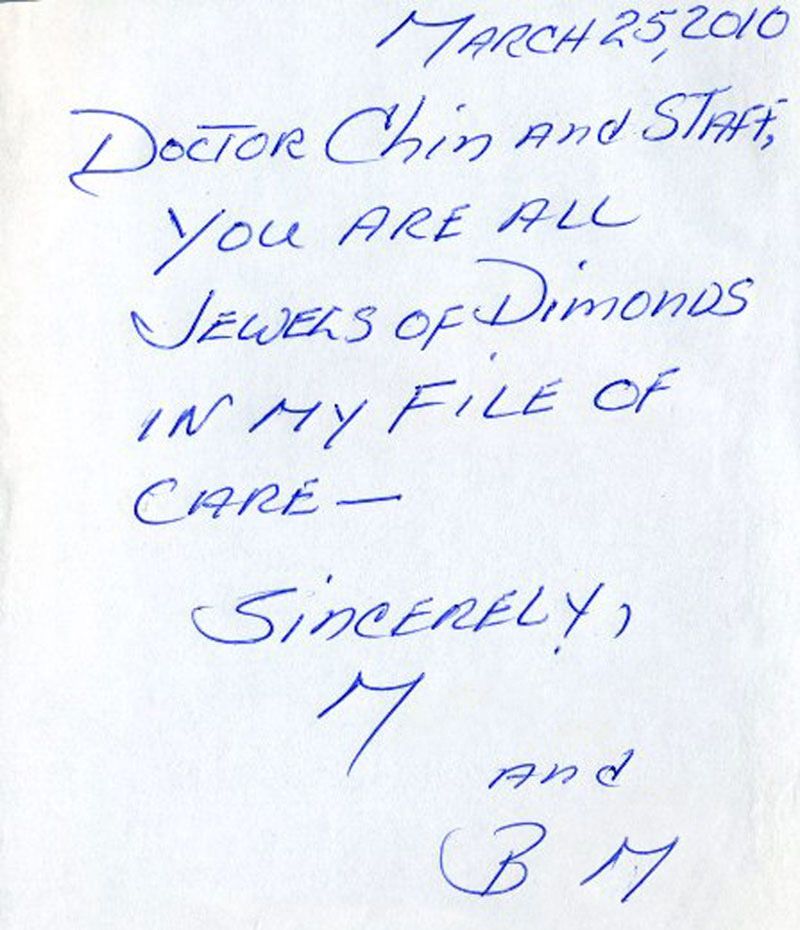 MARCH 25, 2010
DOCTOR Chin and STAFF,
YOU ARE ALL
JEWELS OF DIMONDS
IN MY FILE OF
CARE—
SINCERELY,
M
and
B M